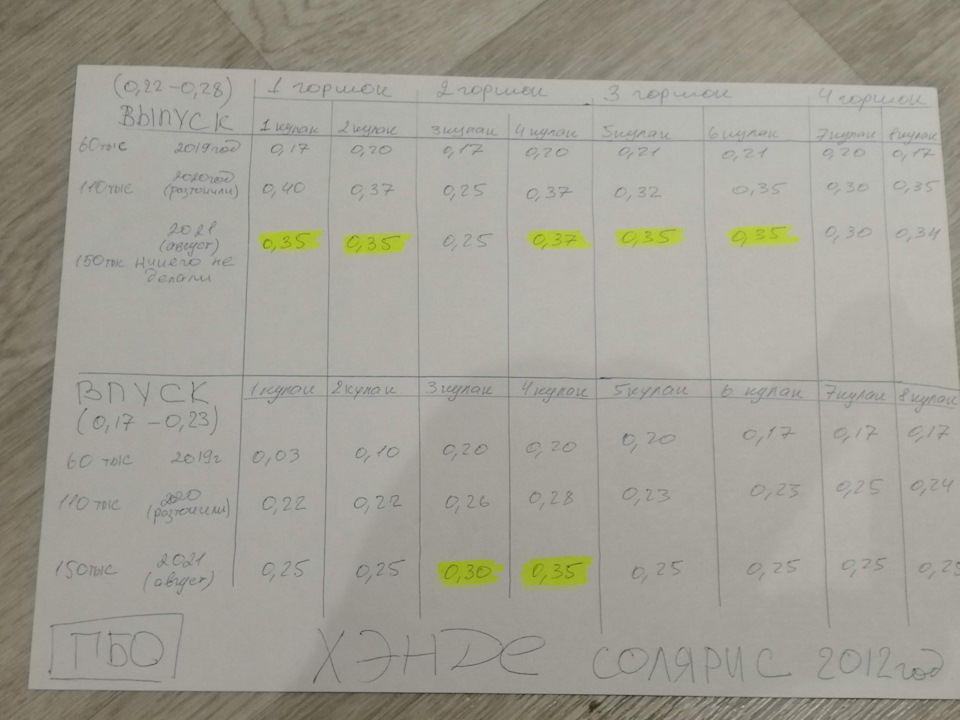 (0,22-0,28) 1 горшок 2 горшок 3 горшок 4 горшок
ВЫПУСК 1 кулак 2 кулак 3 кулак 4 кулак 5 кулак 6 кулак 7 кулак 8 кулак
60 тыс 2019 год 0,17 0,20 0,17 0,20 0,21 0,21 0,20 0,17
110 тыс 2020 год (розточили) 0,40 0,37 0,25 0,37 0,32 0,35 0,30 0,35
2021 (август) 0,35 0,35 0,25 0,37 0,35 0,35 0,30 0,34
150 тыс ничего не
делали
ВПУСК 1 кулак 2 кулак 3 кулак 4 кулак 5 кулак 6 кулак 7 кулак 8 кулак
(0,17-0,23)
60 тыс 2019 г 0,03 0,10 0,20 0,20 0,20 0,17 0,17 0,17
110 тыс 2020 (розточили) 0,22 0,22 0,26 0,28 0,23 0,23 0,25 0,24
150 тыс 2021 (август) 0,25 0,25 0,30 0,35 0,25 0,25 0,25 0,25
ПБО ХЭНДЕ СОЛЯРИС 2012 год